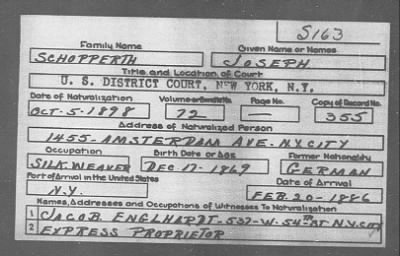 S163
Family Name Given Name or Names
SCHOPPERTH JOSEPH
Title and Location of Court
U. S. DISTRICT COURT, NEW YORK, N.Y.
Date of Naturalization Volume or Bundle No. Page No. Copy of Record No.
OCT-5-1898 72 — 355
Address of Naturalized Person
1455-AMSTERDAM AVE-N.Y.CITY
Occupation Birth Date or Age Former Nationality
SILK WEAVER DEC-17-1869 GERMAN
Port of Arrival in the United States Date of Arrival
N.Y. FEB-20-1886
Names, Addresses and Occupations of Witnesses To Naturalization
1 JACOB ENGLHARDT-537-W. 54TH ST N.Y.CITY
2 EXPRESS PROPRIETOR